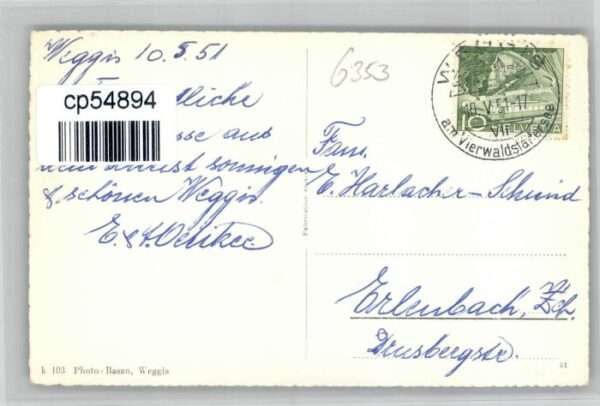 Weggis 10.5.51
cp54894
6353
liche
sse aus
sonnigen
& schönen Weggis.
E. & A. Oetiker
WEGGIS
10.V.51-17
am Vierwaldstättersee
10
HELVETIA
Fam.
E. Harlacher-Schmid
Erlenbach, Zch.
Drusbergstr.
k 103 Photo-Basso, Weggis
51